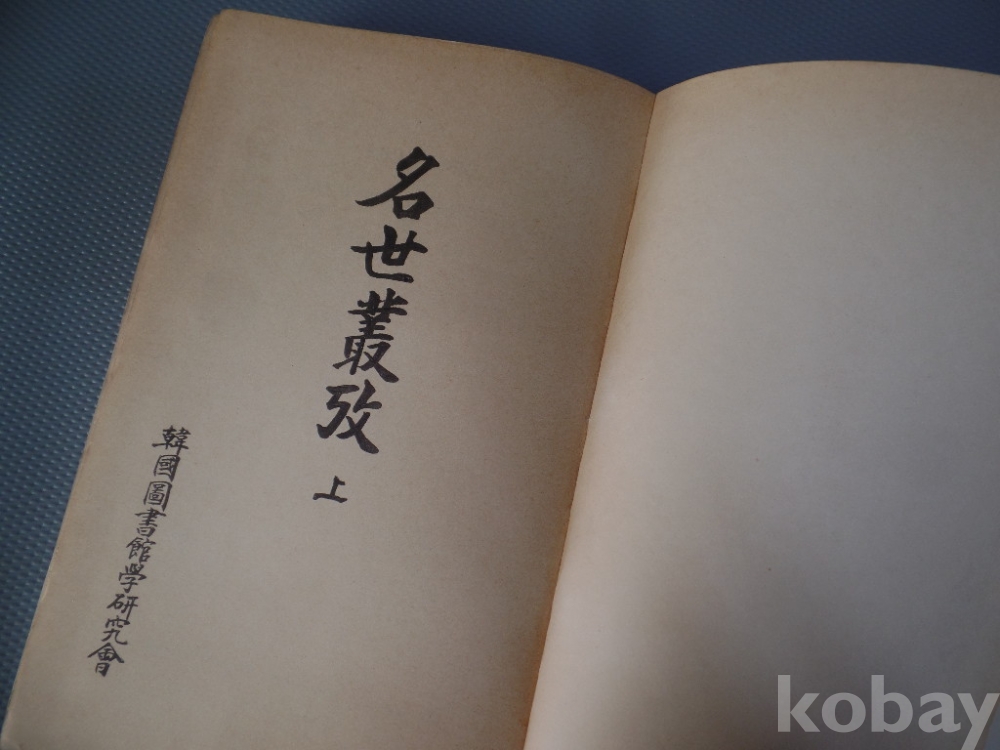 名世叢攷
上
韓國圖書館學研究會
kobay